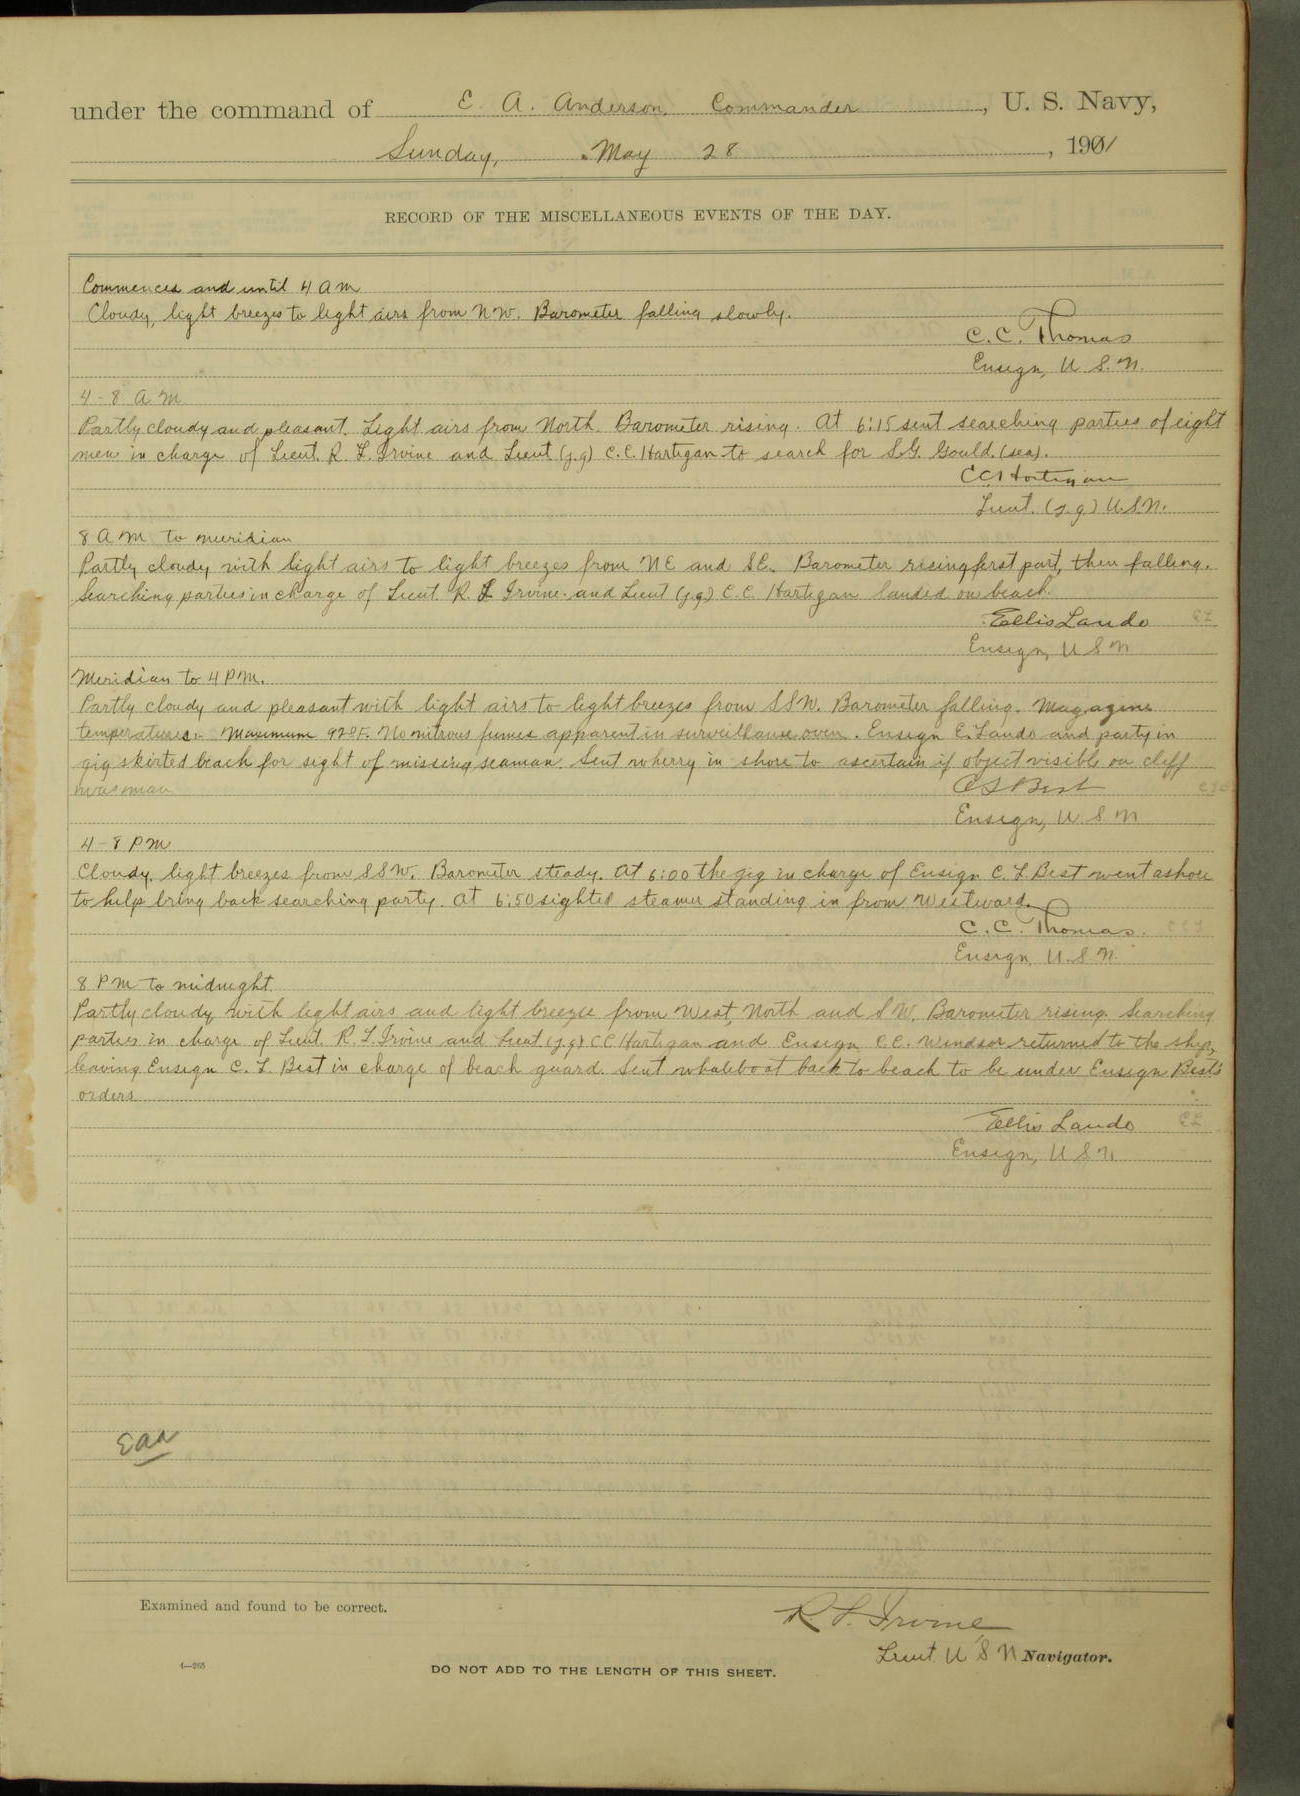 under the command of E. A. Anderson, Commander, U. S. Navy,
Sunday, May 28, 1901
RECORD OF THE MISCELLANEOUS EVENTS OF THE DAY.
Commences and until 4 a m
Cloudy, light breezes to light airs from NW. Barometer falling slowly.
C. C. Thomas
Ensign, U. S. N.
4-8 a M
Partly cloudy and pleasant. Light airs from North. Barometer rising. At 6:15 sent searching parties of eight
men in charge of Lieut. R. L. Irvine and Lieut (j.g) C. C. Hartigan to search for S.G. Gould. (sea).
CC Hartigan
Lieut. (j.g) U.S.N.
8 a m to meridian
Partly cloudy with light airs to light breezes from NE and SE. Barometer rising first part, then falling.
Searching parties in charge of Lieut. R. L Irvine and Lieut (j.g) C. C. Hartigan landed on beach.
Ellis Lando
Ensign, U S N
Meridian to 4 P.M.
Partly cloudy and pleasant with light airs to light breezes from SSW. Barometer falling. Magazine
temperatures:- Maximum 92°F. No nitrous fumes apparent in surveillance oven. Ensign E. Lando and party in
gig skirted beach for sight of missing seaman. Sent wherry in shore to ascertain if object visible on cliff
was man
C L Best
Ensign, U S N
4-8 P M
Cloudy, light breezes from SSW. Barometer steady. At 6:00 the gig in charge of Ensign C. L. Best went ashore
to help bring back searching party. At 6:50 sighted steamer standing in from Westward.
C. C. Thomas.
Ensign, U. S. N.
8 P M to midnight.
Partly cloudy with light airs and light breeze from West, North and SW. Barometer rising. Searching
parties in charge of Lieut. R. L. Irvine and Lieut (j.g) CC Hartigan and Ensign C. C. Windsor returned to the ship,
leaving Ensign C. L. Best in charge of beach guard. Sent whaleboat back to beach to be under Ensign Best's
orders
Ellis Lando
Ensign, U S N
Eaa
Examined and found to be correct.
R L Irvine
Lieut. U S N Navigator.
4—265
DO NOT ADD TO THE LENGTH OF THIS SHEET.